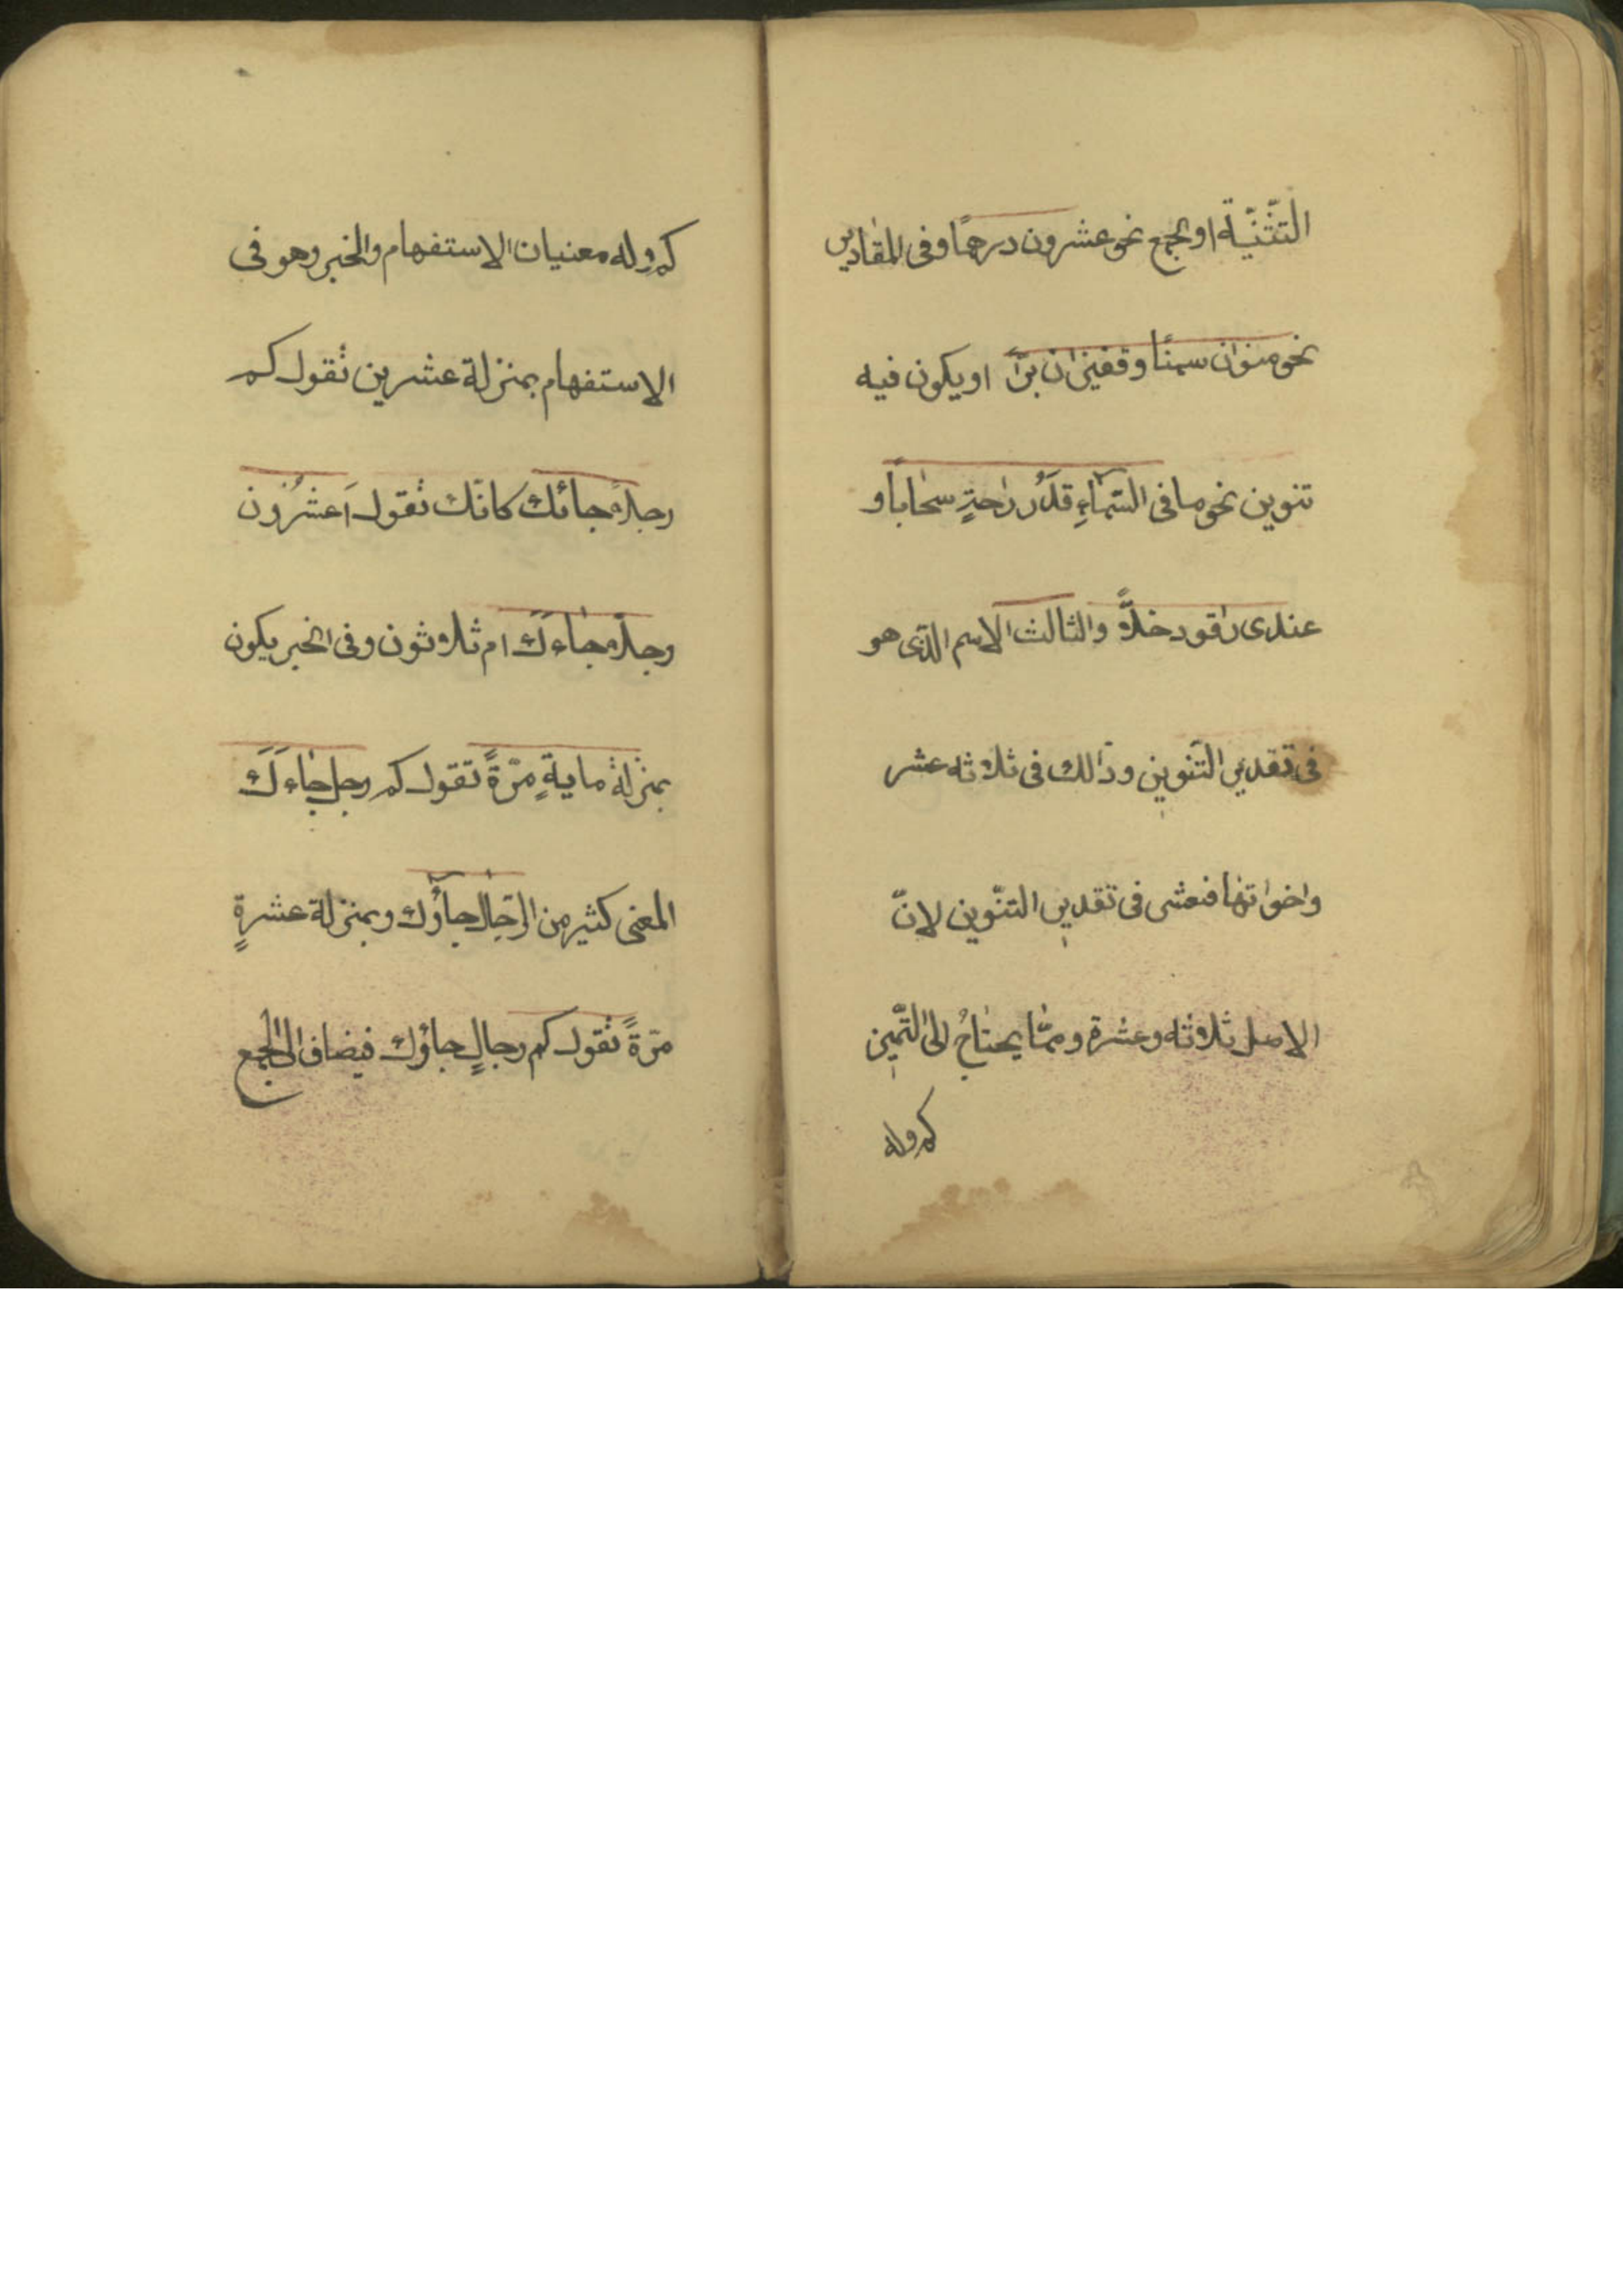 التّثنّيّة او الجمع نحو عشرون درهمًا وفى المقادير
نحو منوان سمنًا وقفيزان برّاً او يكون فيه
تنوين نحو ما فى السّمآءِ قدَرُ راحةٍ سحاباً و
عندى راقود خلاًّ والثالث الاسم الّذى هو
فى تقدير التّنوين وذالك فى ثلاثه عشر
واخواتها فعشر فى تقدير التنّوين لانّ
الاصل ثلاثه وعشرة وممّا يحتاجُ الى التّميز
كم وله
كم وله معنيان الاستفهام والخبر وهو فى
الاستفهام بمنزلة عشرين تقول كم
رجلاً جائك كانّك تقول اَعشرُون
رجلاً جاءكَ ام ثلاثون وفى الخبر يكون
بمنزلة مايةٍ مرّةً تقول كم رجلٍ جاءكَ
المعنى كثير من الرّجال جآؤك وبمنزلة عشرةٍ
مرّةً تقول كم رجالٍ جاؤك فيضاف الى الجمع